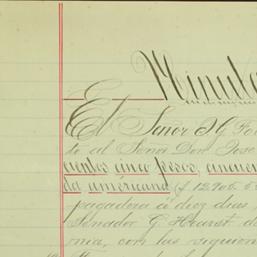 Minuta
El Señor I G Fo
to al Señor Don José
cientos cinco pesos, cincuen
da américana ($12.905.5
pagadera á diez dias
Senador G. Hearst, de
nia, con las siguien